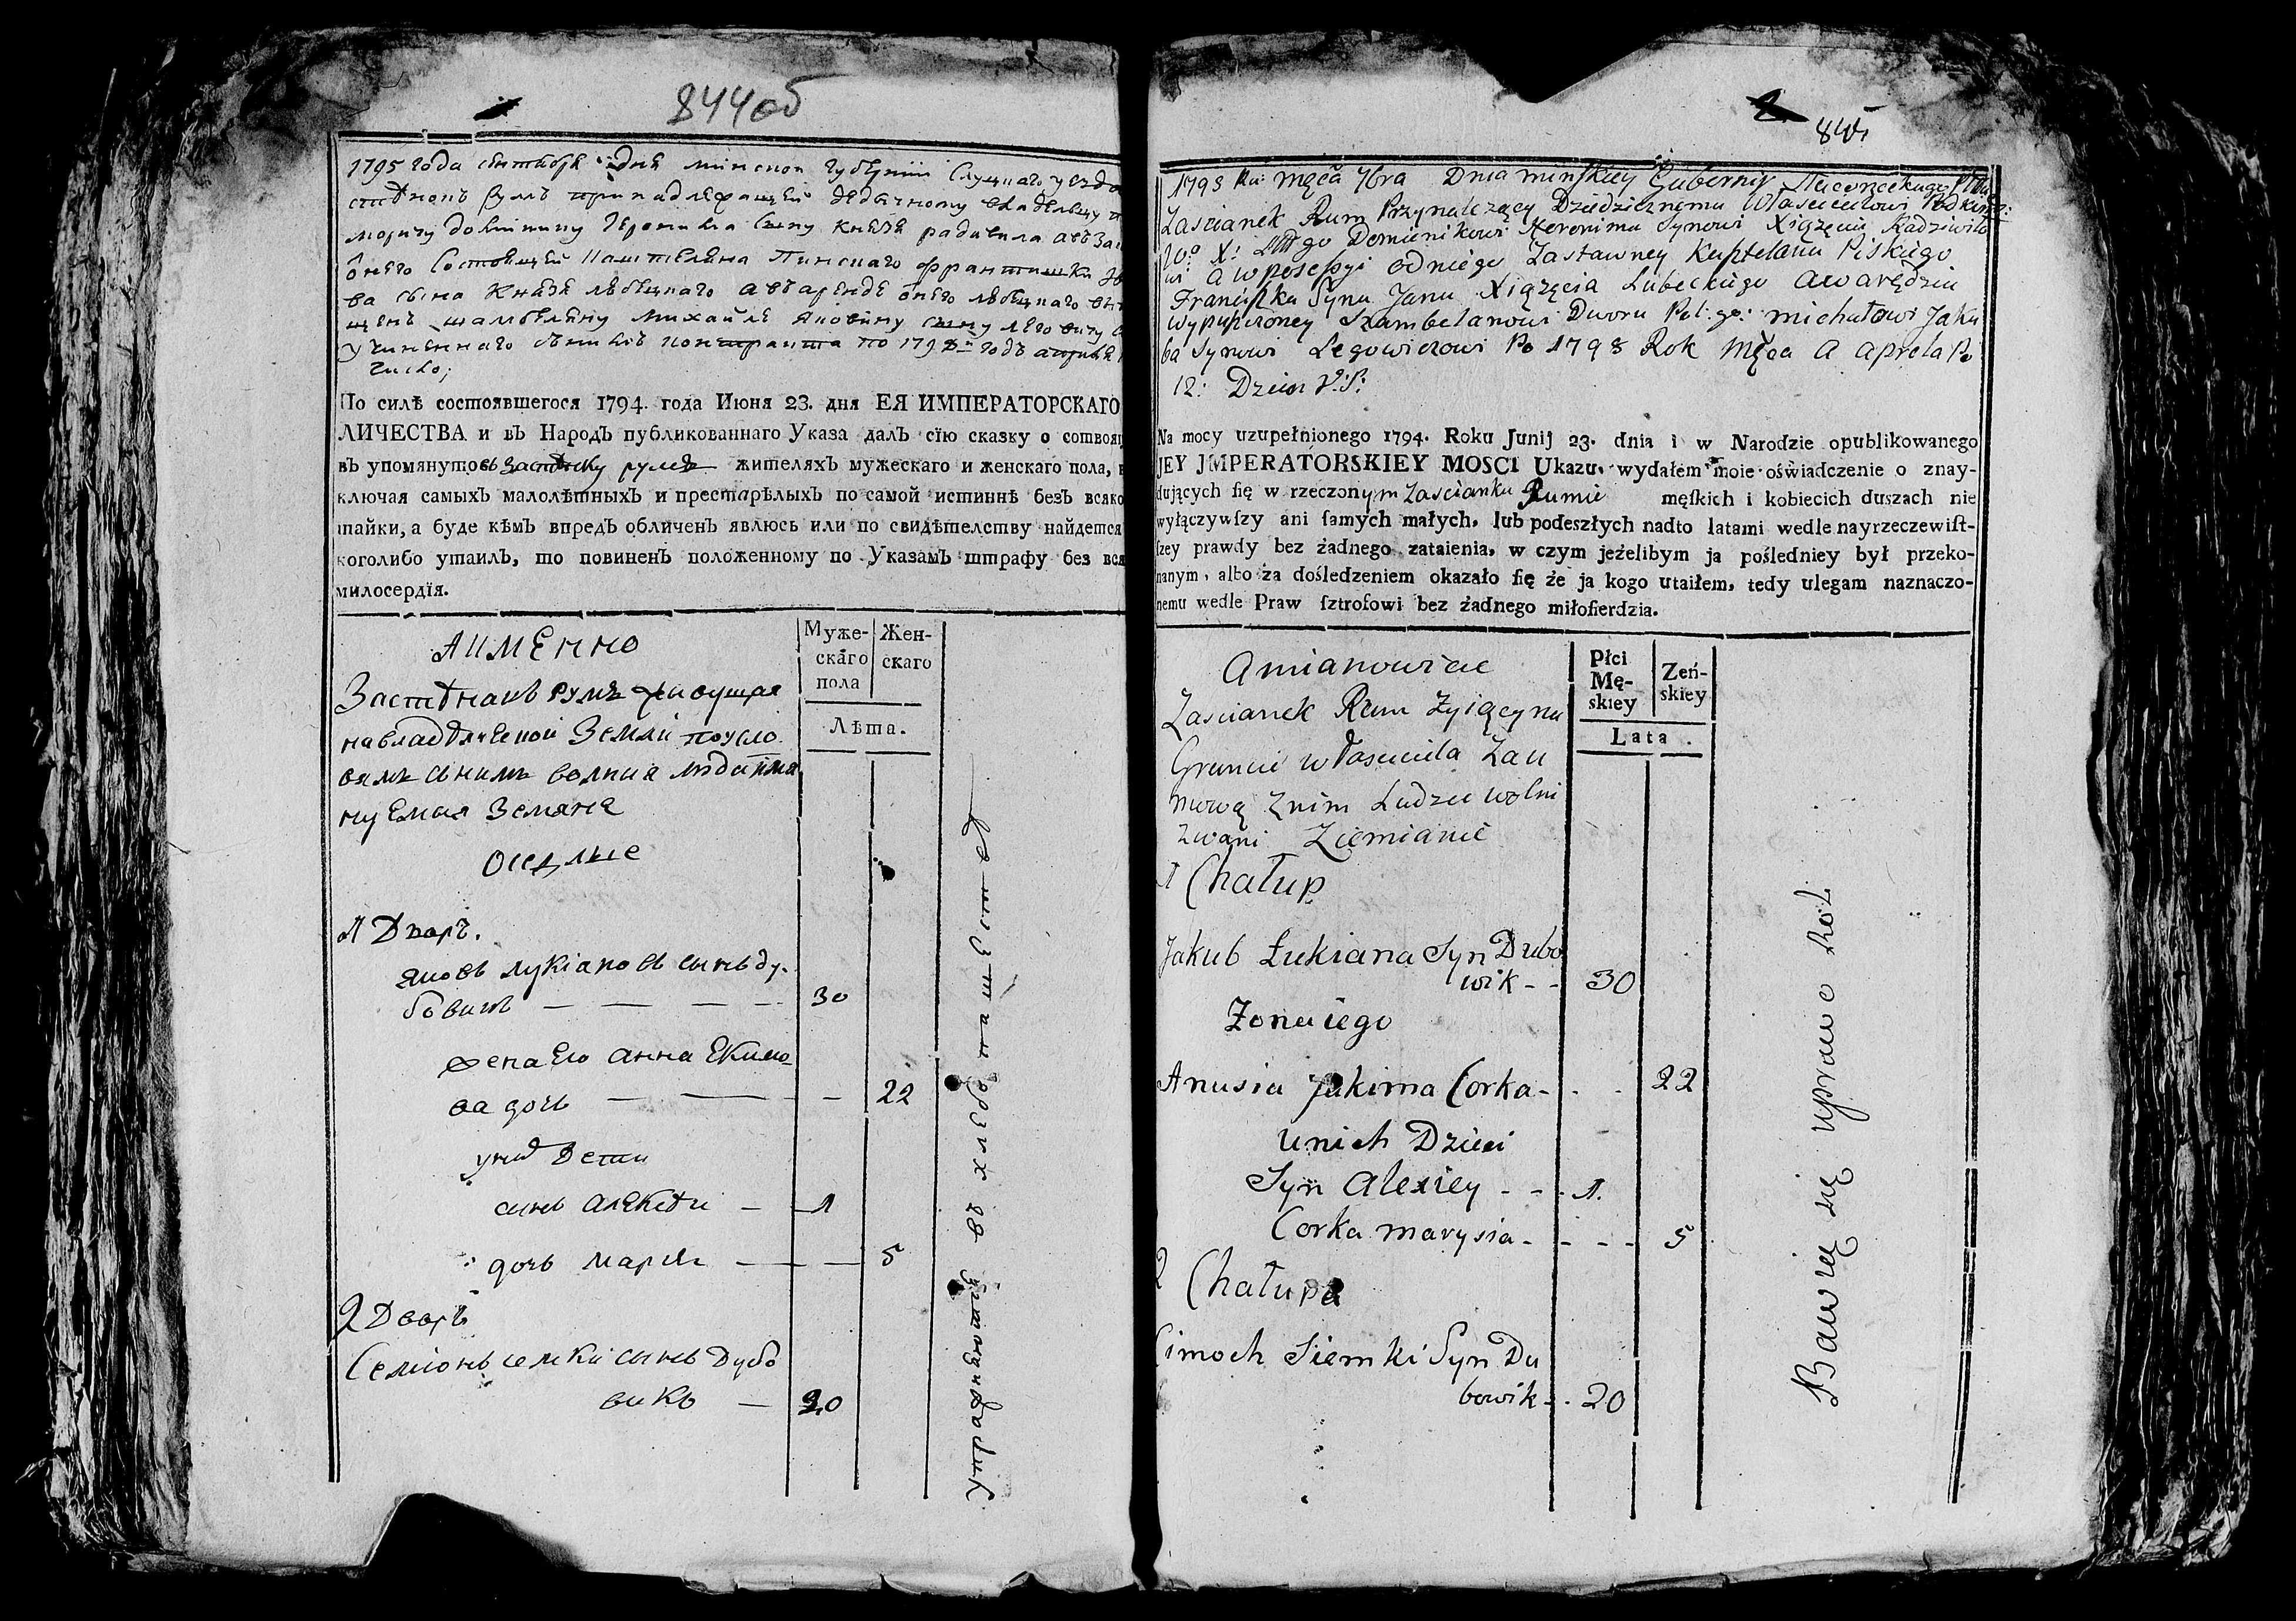 844об
1795 года сентября дня минской губернии Слуцкаго уезда
стѣнокъ румъ принадлежащей дедычному владельцу
доминику Иеронима сыну князя радивила авъ За
онего Состоящей Каштеляна Пинскаго франтишка
ва сына Князя любецкаго авъ аренде онего любецкаго
щенъ шамбеляну михайле яковину сыну
учиненнаго контракта по 1798 годъ априля
число;
По силѣ состоявшегося 1794. года Июня 23. дня ЕЯ ИМПЕРАТОРСКАГО
ЛИЧЕСТВА и въ НародЪ публикованнаго Указа далЪ сїю сказку о состоя
въ упомянутовъ застѣнку руме жителяхЪ мужескаго и женскаго пола,
ключая самыхЪ малолѣтныхЪ и престарѣлыхЪ по самой истиннѣ безЪ всяко
тайки, а буде кѣмЪ впредЪ обличенЪ явлюсь или по свидѣтелству найдется
коголибо утаилЪ, то повиненЪ положенному по УказамЪ штрафу без вся
милосердїя.
АИМЕННО
Муже-
скаго
пола
Жен-
скаго
Лѣта.
Застѣнакъ румъ живущая
навладѣлческой Земли поусло
вямъ снимъ волния люди имя
нуемыя Земяне
Оседлые
1 Дворъ.
яковъ лукіановъ сынъ ду-
бовикъ — — — — 30
жена Его анна Екимо-
ва дочь — — — 22
уних дети
сынъ алексѣи — 1
дочь марья — — 5
2 Дворъ
Семіонъ семки сынъ Дубо
викъ — 20
упражняютца въ хлебопашестве
845
1795 Ru: Męca 7bra Dnia minskiey Gubernij
Zascianek Rum Przynalezący Dziedzicznemu Własciecielowi Podko
Domienikowi Heronima Synowi Xiązęciu Radziwiło
wi a w posessyi odniego Zastawney Kasztelana Piskiego
Franciszka Synu Janu Xiązęcia Lubeckiego awarędzie
wypuszczoney Szambelanowi Dworu Pol:go: michałowi Jaku
ba Synowi Legowiczowi Po 1798 Rok Męca A aprela Po
12: Dzien V:S:
Na mocy uzupełnionego 1794. Roku Junij 23. dnia i w Narodzie opublikowanego
JEY JMPERATORSKIEY MOSCI Ukazu, wydałem moie oświadczenie o znay-
dujących ſię w rzeczonym Zascianku Rumie męſkich i kobiecich duszach nie
wyłączywſzy ani ſamych małych, lub podeszłych nadto latami wedle nayrzeczewiſt-
ſzey prawdy bez żadnego zataienia, w czym jeżelibym ja poſledniey był przeko-
nanym, albo za dośledzeniem okazało ſię że ja kogo utaiłem, tedy ulegam naznaczo-
nemu wedle Praw ſztrofowi bez żadnego miłoſierdzia.
Amianowicie
Płci
Mę-
skiey
Zeń-
skiey
Lata.
Zascianek Rum Zyiący na
Gruncie własciciela Zau
mową Znim Ludzie wolni
zwani Ziemianie
1 Chałup
Jakub Łukiana Syn Dubo
wik - - 30
Zona iego
Anusia Jakima Corka - - - 22
unich Dzieci
Syn Alexiey - - - 1.
Corka marysia - - - - 5
2 Chałupa
Cimoch Siemki Syn Du
bowik - - 20
Bawią się uprawe Roli